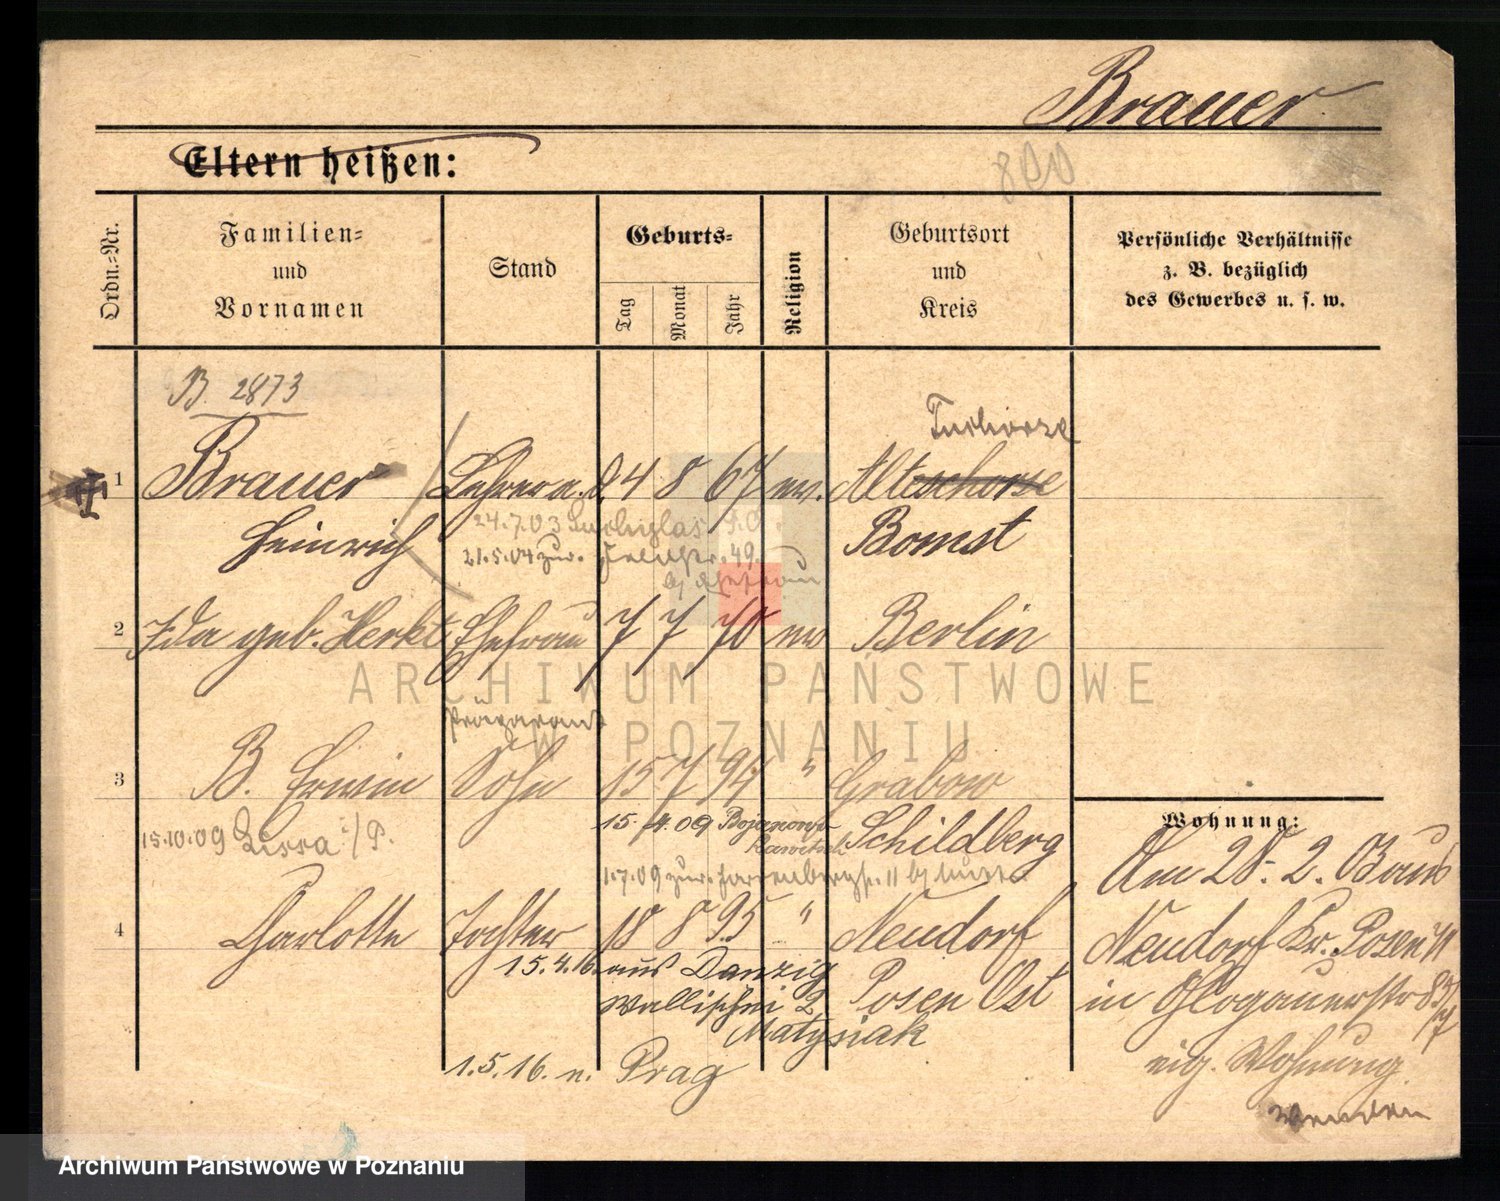 Brauer
Eltern heißen:
800
Ordn.-Nr.
Familien-
und
Vornamen
Stand
Geburts-
Tag
Monat
Jahr
Religion
Geburtsort
und
Kreis
Persönliche Verhältnisse
z. B. bezüglich
des Gewerbes u. s. w.
B. 2873
Tuchorze
1 Brauer Lehrer a. D. 24 8 67 ev. Altschorse
Heinrich Bomst
24.7.03
21.5.04 zur. 49.
2 Ida geb. Herkt Ehefrau 7 7 70 ev Berlin
ARCHIWUM PAŃSTWOWE
W POZNANIU
Präparand
3 B. Erwin Sohn 15 7 94 " Grabow
15.4.09 Bojanowo
Rawitsch
Schildberg
15.10.09 Lissa i/P.
1.7.09 zur.
4 Charlotte Tochter 18 8 95 " Neudorf
Posen Ost
15.4.16 aus Danzig
Wallischei 2
Matysiak
1.5.16. n. Prag
Wohnung:
Am 28. 2. 
Neudorf Kr. Posen
in Glogauerstr 83
eig. Wohnung.
wenden
Archiwum Państwowe w Poznaniu